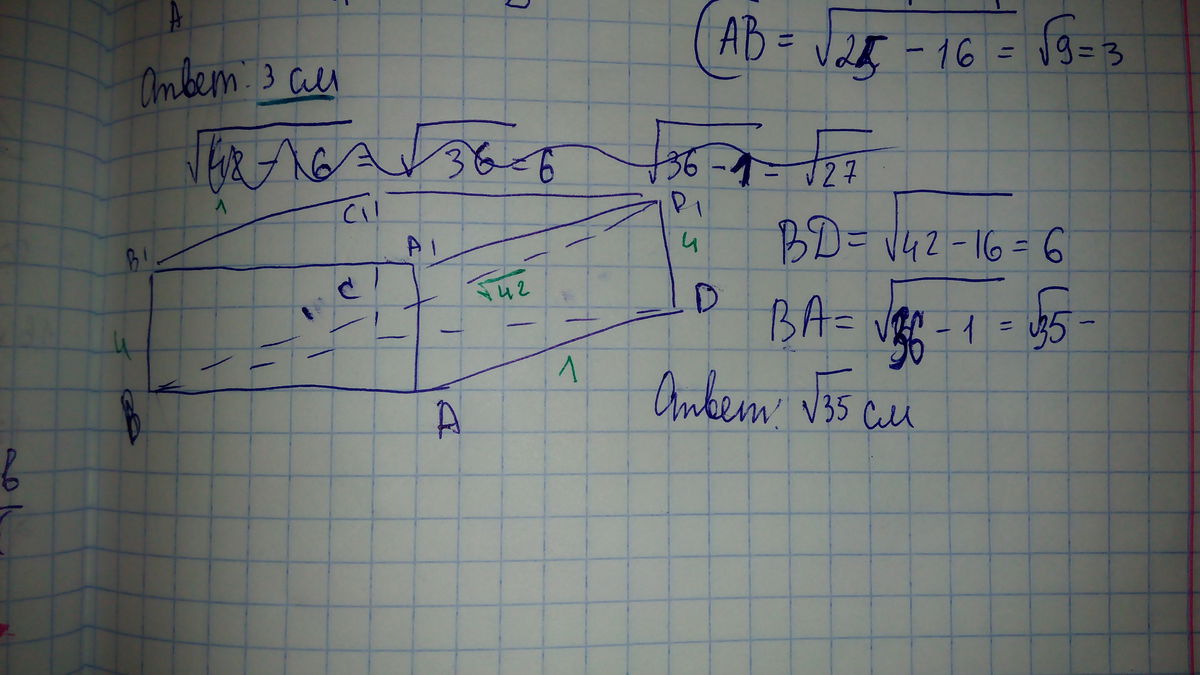 A
AB = √25 - 16 = √9 = 3
Ответ: 3 см
√42 - 16 = √36 = 6 √36 - 1 = √27
1
C1
D1
B1
A1
4
BD = √42 - 16 = 6
√42
C
D
BA = √36 - 1 = √35 -
4
1
Ответ: √35 см
B
A
в